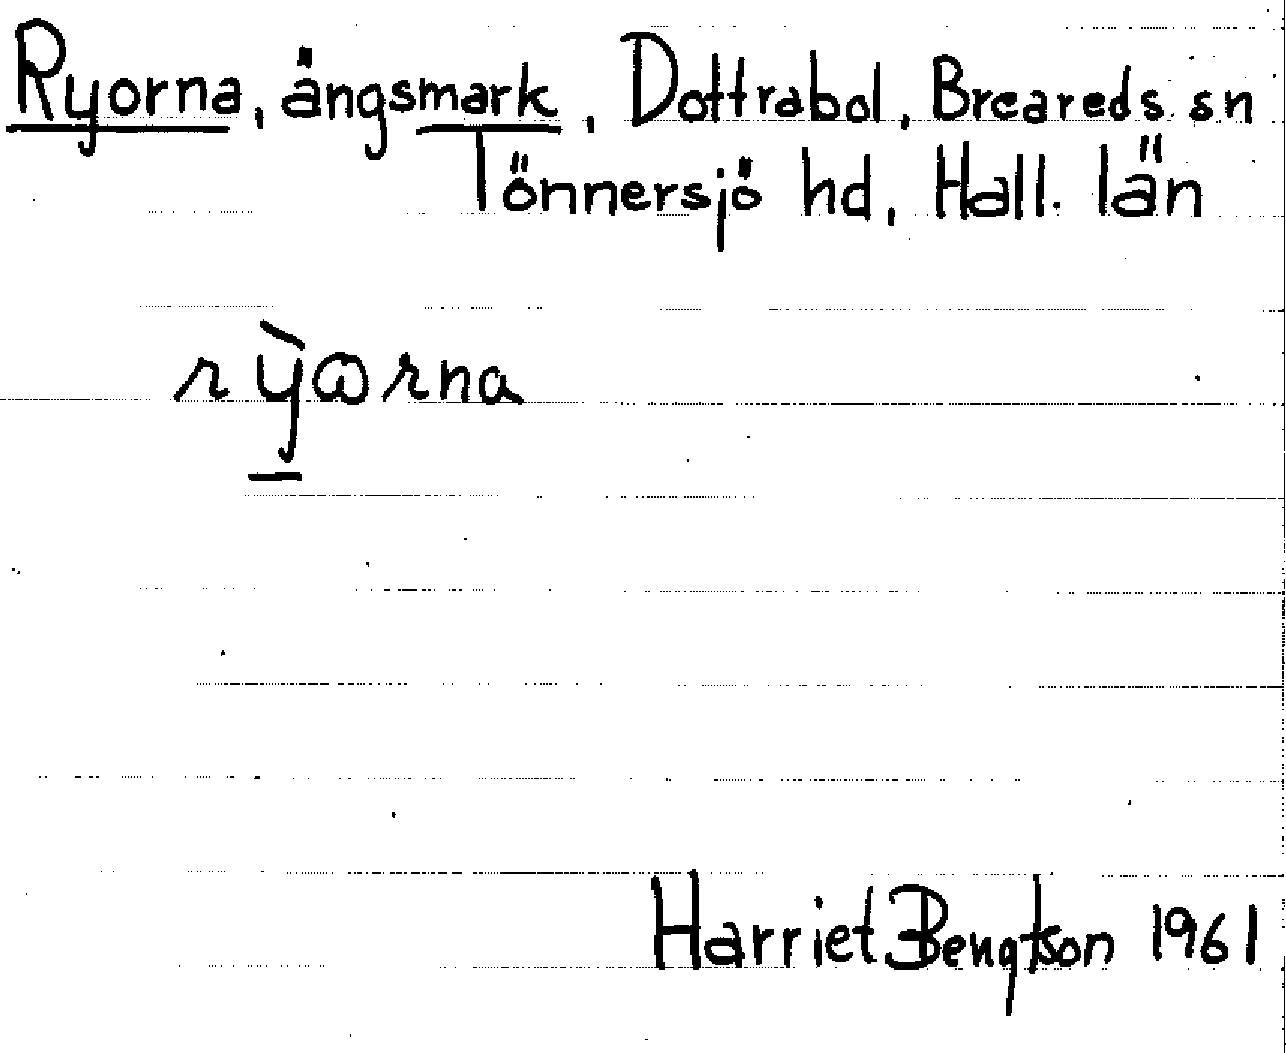 Ryorna, ängsmark, Dottrabol, Breareds sn
Tönnersjö hd, Hall. län
rỳɷrna
Harriet Bengtson 1961